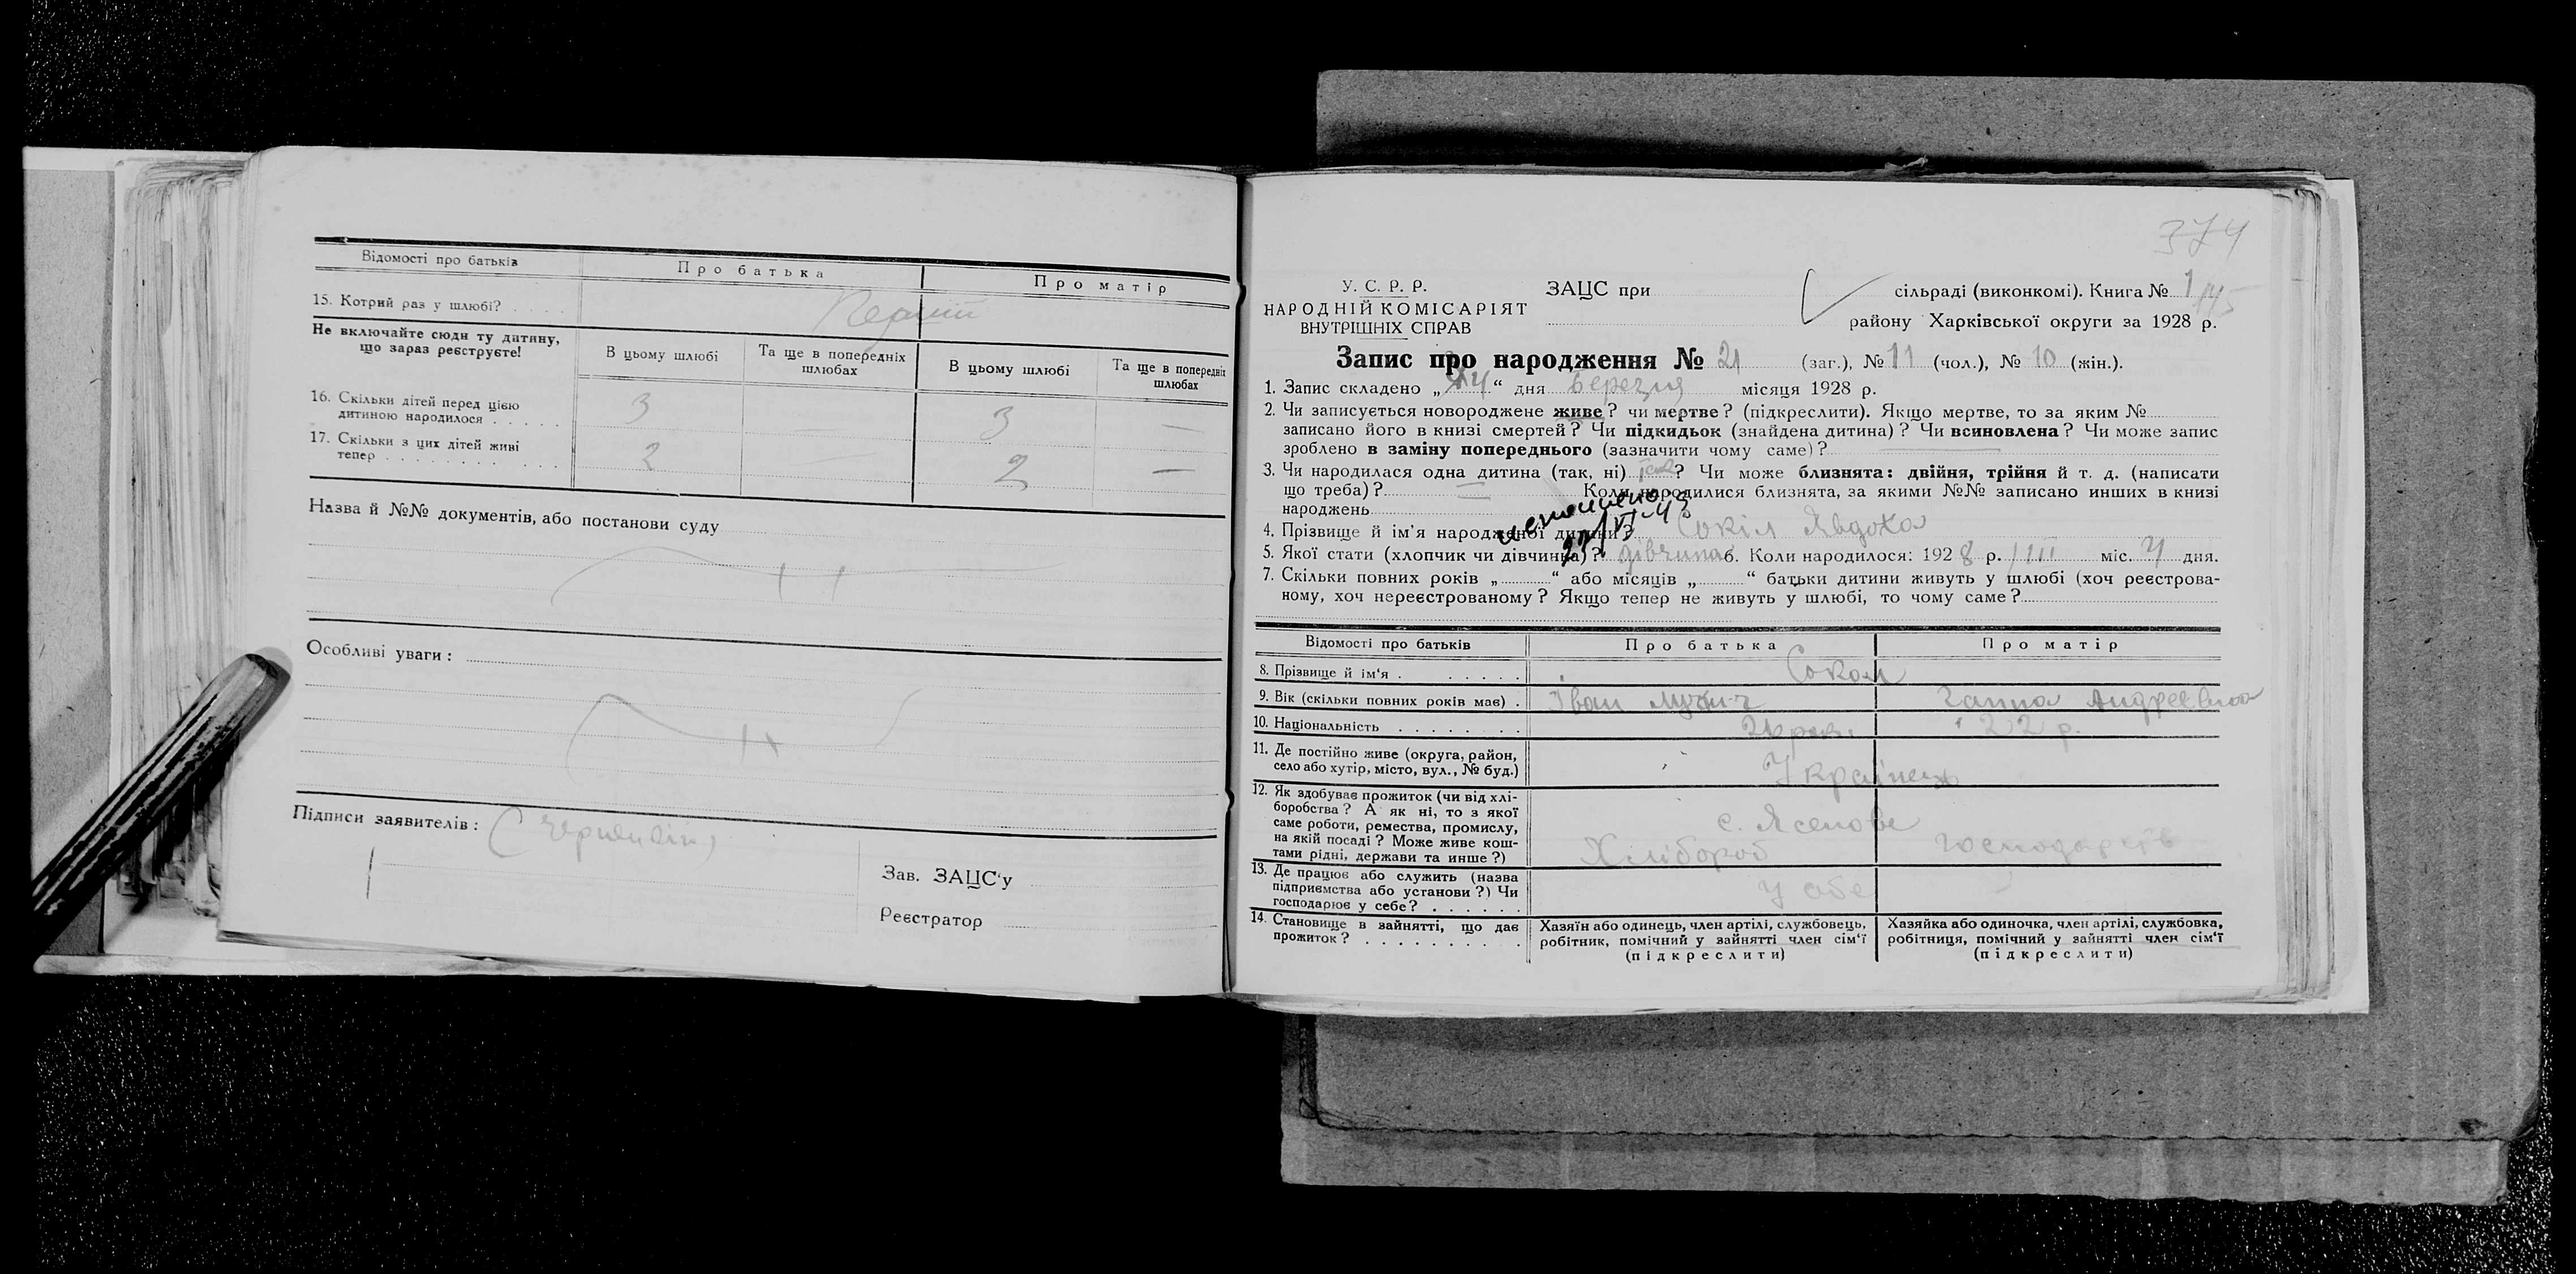 Відомості про батьків
Про батька
Про матір
15. Котрий раз у шлюбі? . . . .
Перший
Не включайте сюди ту дитину,
що зараз реєструєте!
В цьому шлюбі
Та ще в попередніх
шлюбах
В цьому шлюбі
Та ще в попередніх
шлюбах
16. Скільки дітей перед цією
дитиною народилося . . . . .
3 — 3 —
17. Скільки з цих дітей живі
тепер . . . . . . . . . . . .
2 — 2 —
Назва й №№ документів, або постанови суду
Особливі уваги :
Підписи заявителів :
Зав. ЗАЦС'у
Реєстратор
374
У. С. Р. Р.
НАРОДНІЙ КОМІСАРІЯТ
ВНУТРІШНІХ СПРАВ
ЗАЦС при
сільраді (виконкомі). Книга № 1
145
району Харківської округи за 1928 р.
Запис про народження № 21 (заг.), № 11 (чол.), № 10 (жін.).
1. Запис складено „ “ дня Березня місяця 1928 р.
2. Чи записується новороджене живе? чи мертве? (підкреслити). Якщо мертве, то за яким №
записано його в книзі смертей? Чи підкидьок (знайдена дитина)? Чи всиновлена? Чи може запис
зроблено в заміну попереднього (зазначити чому саме)?
3. Чи народилася одна дитина (так, ні) так? Чи може близнята: двійня, трійня й т. д. (написати
що треба)? — Коли народилися близнята, за якими №№ записано инших в книзі
народжень
27/VI-43
4. Прізвище й ім'я народженої дитини? Сокіл Явдоха
5. Якої стати (хлопчик чи дівчинка)? дівчина 6. Коли народилося: 1928 р. III міс. 4 дня.
7. Скільки повних років „ “ або місяців „ “ батьки дитини живуть у шлюбі (хоч реєстрова-
ному, хоч нереєстрованому? Якщо тепер не живуть у шлюбі, то чому саме?
Відомості про батьків
Про батька
Про матір
8. Прізвище й ім'я . . . . . .
Сокол
9. Вік (скільки повних років має) .
Іван
Ганна Андреєвна
10. Національність . . . . . . . .
22 р.
11. Де постійно живе (округа, район,
село або хутір, місто, вул., № буд.)
Українець
12. Як здобуває прожиток (чи від хлі-
боробства? А як ні, то з якої
саме роботи, ремества, промислу,
на якій посаді? Може живе кош-
тами рідні, держави та инше?)
с. Ясенове
Хлібороб
13. Де працює або служить (назва
підприємства або установи?) Чи
господарює у себе? . . . . . .
у себе
14. Становище в зайнятті, що дає
прожиток? . . . . . . . . .
Хазяїн або одинець, член артілі, службовець,
робітник, помічний у зайнятті член сім'ї
(підкреслити)
Хазяйка або одиночка, член артілі, службовка,
робітниця, помічний у зайнятті член сім'ї
(підкреслити)